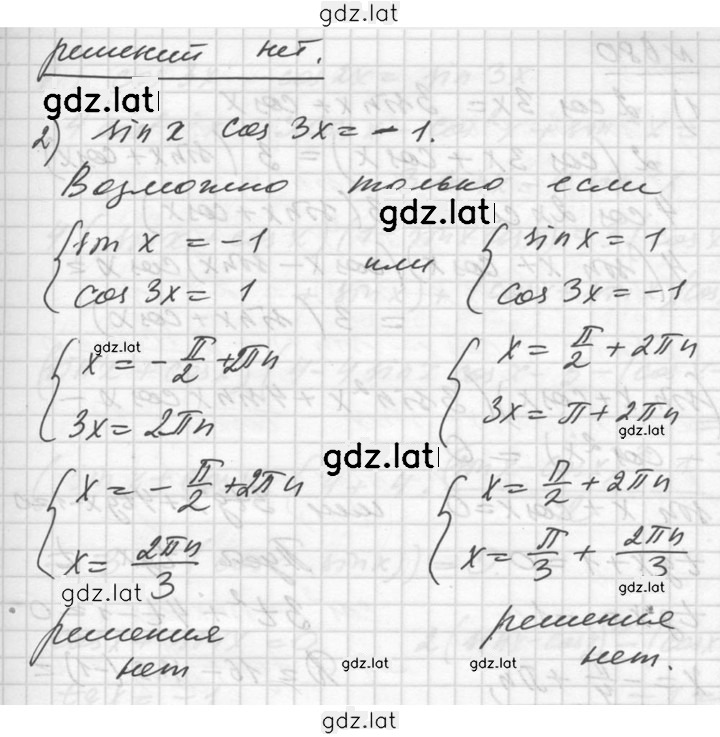 gdz.lat
решений нет.
gdz.lat
2) sin x cos 3x = - 1.
Возможно только если
gdz.lat
{ sin x = -1
cos 3x = 1
или
{ sin x = 1
cos 3x = -1
gdz.lat
{ x = - π/2 + 2πn
3x = 2πn
{ x = π/2 + 2πn
3x = π + 2πn
gdz.lat
gdz.lat
{ x = - π/2 + 2πn
x = 2πn/3
{ x = π/2 + 2πn
x = π/3 + 2πn/3
gdz.lat
gdz.lat
решения
нет
решения
нет.
gdz.lat
gdz.lat
gdz.lat